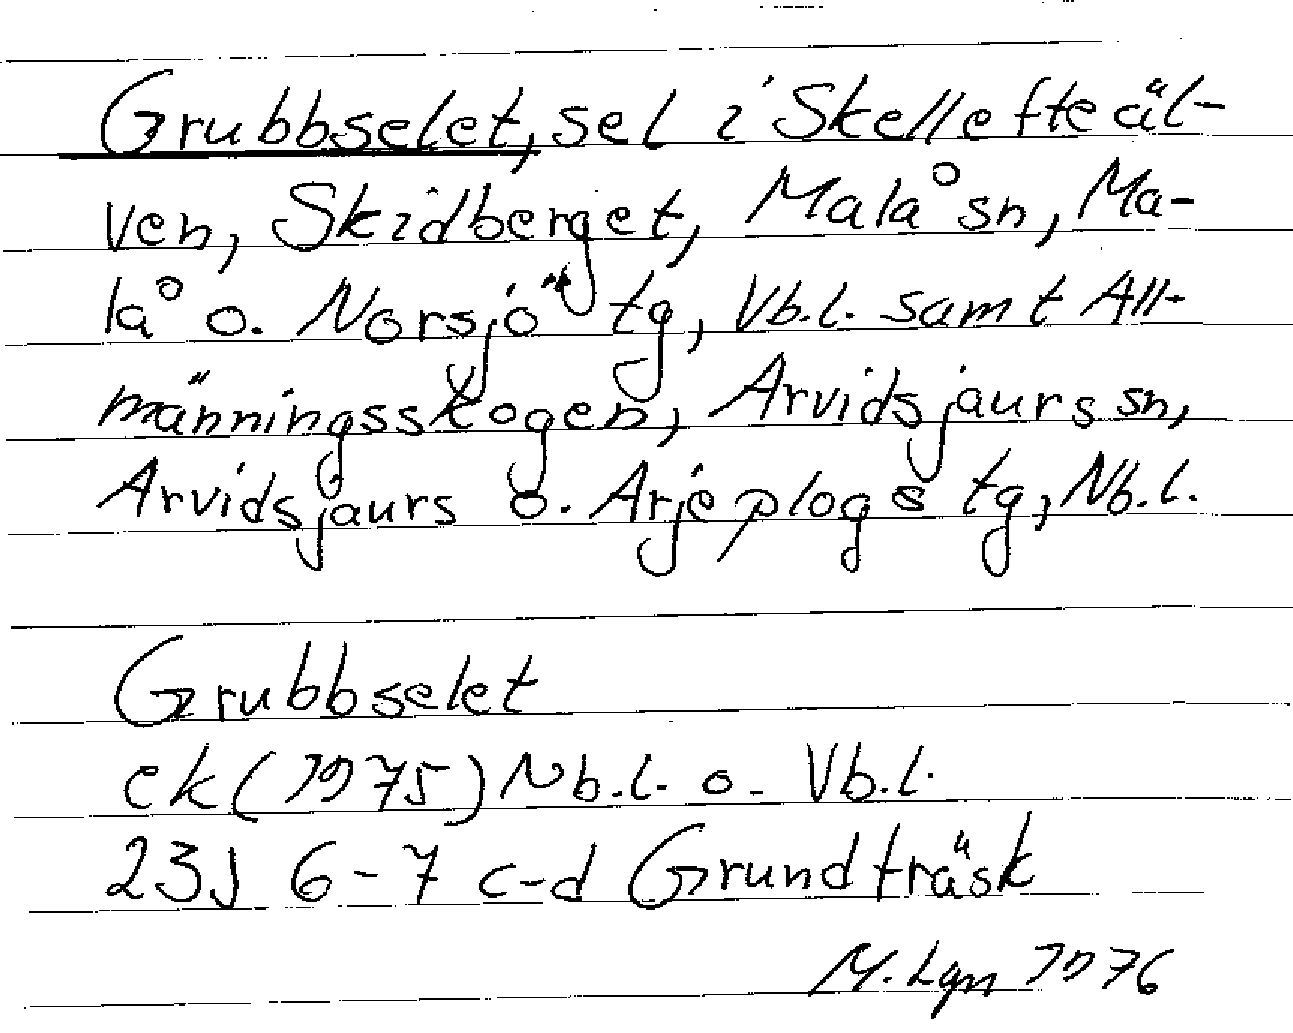 Grubbselet, sel i Skellefteäl-
ven, Skidberget, Malå sn, Ma-
lå o. Norsjö tg, Vb.l. samt All-
männingsskogen, Arvidsjaurs sn,
Arvidsjaurs o. Arjeplogs tg, Nb.l.
Grubbselet
ek (1975) Nb.l. o. Vb.l.
23J 6-7 c-d Grundträsk
M. Lgn 1976